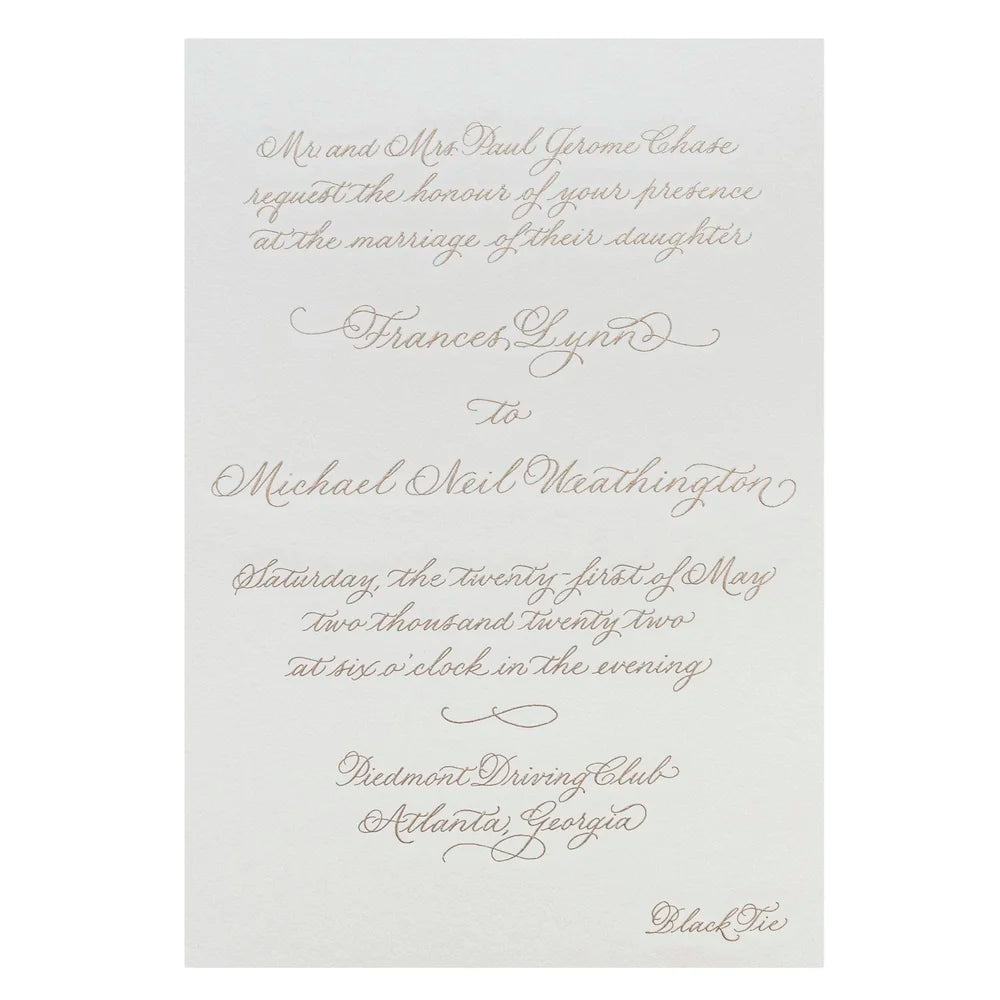 Mr. and Mrs. Paul Jerome Chase
request the honour of your presence
at the marriage of their daughter
Frances Lynn
to
Michael Neil Weathington
Saturday, the twenty-first of May
two thousand twenty two
at six o'clock in the evening
Piedmont Driving Club
Atlanta, Georgia
Black Tie